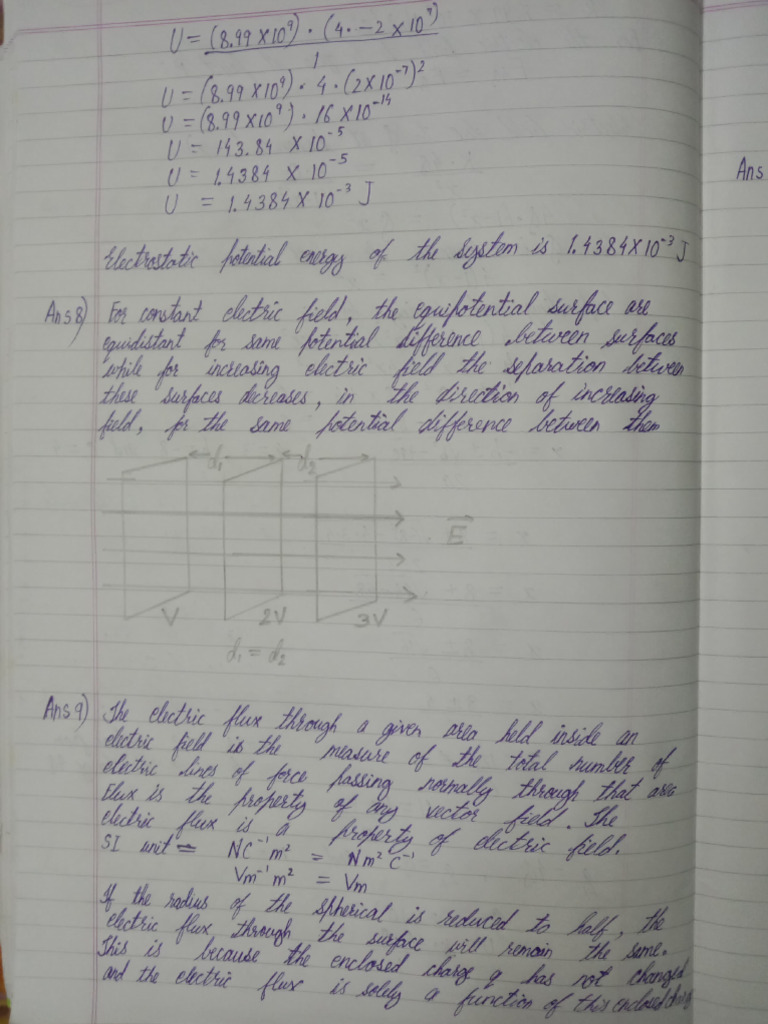 U = (8.99 × 10⁹) · (4 · -2 × 10⁷)
1
U = (8.99 × 10⁹) · 4 · (2 × 10⁻⁷)²
U = (8.99 × 10⁹) · 16 × 10⁻¹⁴
U = 143.84 × 10⁻⁵
U = 1.4384 × 10⁻⁵
U = 1.4384 × 10⁻³ J
Electrostatic potential energy of the system is 1.4384 × 10⁻³ J
Ans
Ans 8) For constant electric field, the equipotential surface are
equidistant for same potential difference between surfaces
while for increasing electric field the separation between
these surfaces decreases, in the direction of increasing
field, for the same potential difference between them
d₁ d₂
E
V 2V 3V
d₁ = d₂
Ans 9) The electric flux through a given area held inside an
electric field is the measure of the total number of
electric lines of force passing normally through that area
Flux is the property of any vector field. The
electric flux is a property of electric field.
SI unit = NC⁻¹m² = Nm²C⁻¹
Vm⁻¹m² = Vm
If the radius of the spherical is reduced to half, the
electric flux through the surface will remain the same.
This is because the enclosed charge q has not changed
and the electric flux is solely a function of this enclosed charge